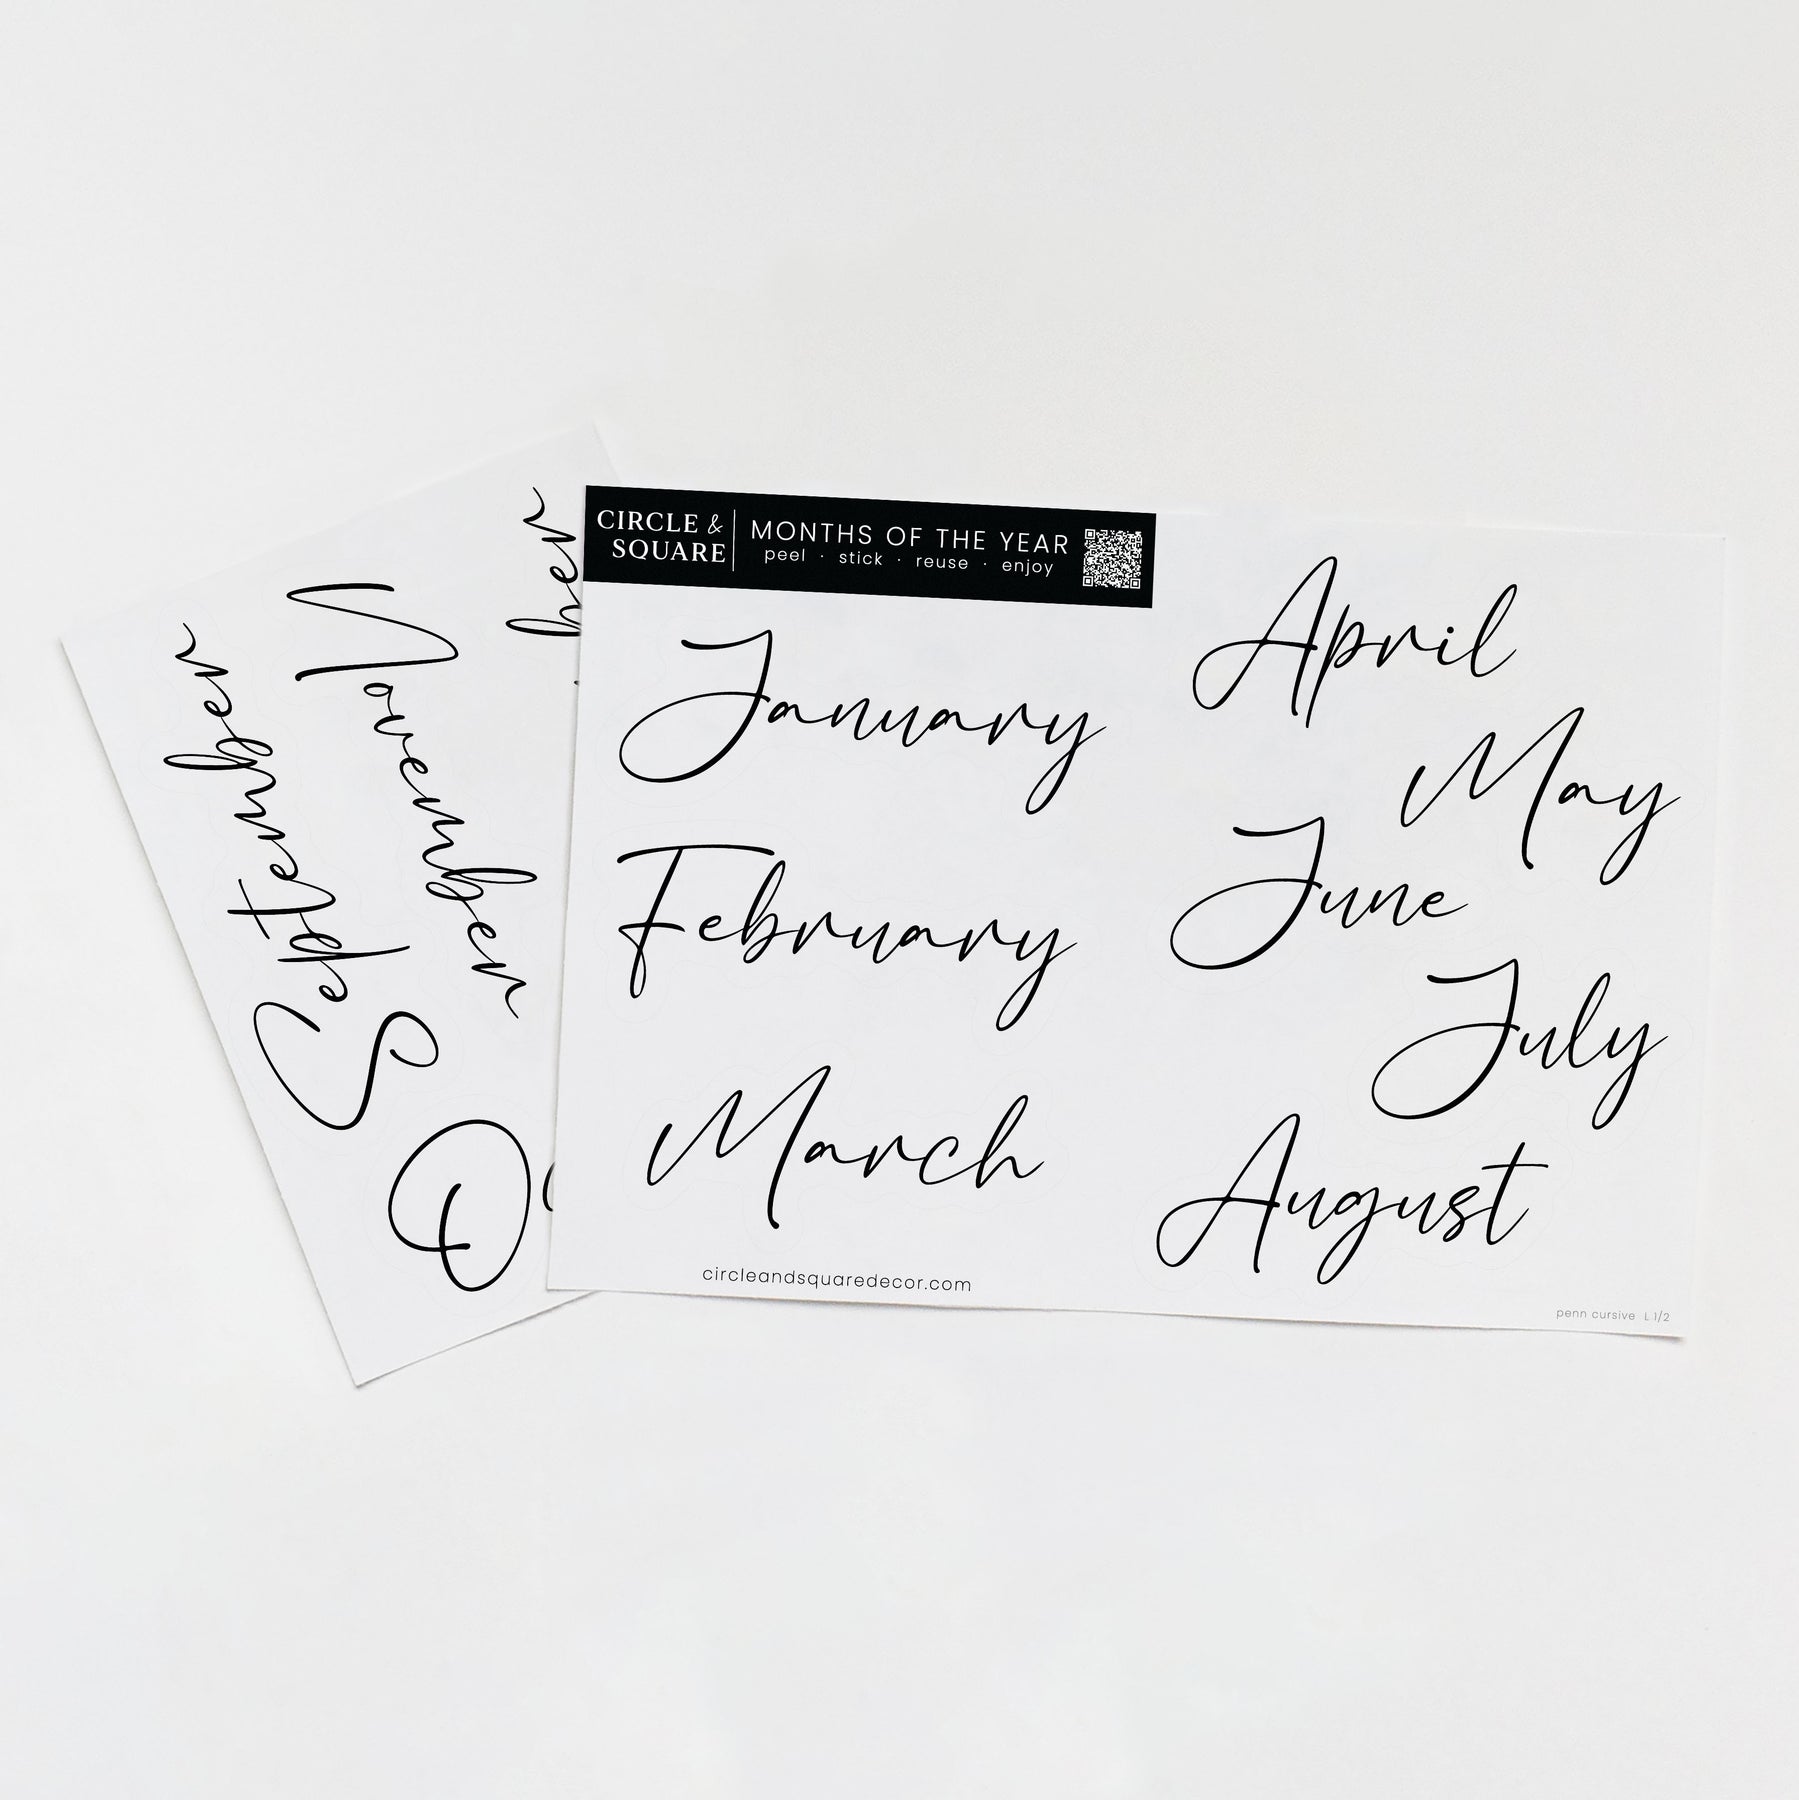 CIRCLE &
SQUARE
MONTHS OF THE YEAR
peel · stick · reuse · enjoy
January
February
March
April
May
June
July
August
circleandsquaredecor.com
penn cursive L 1/2
September
November